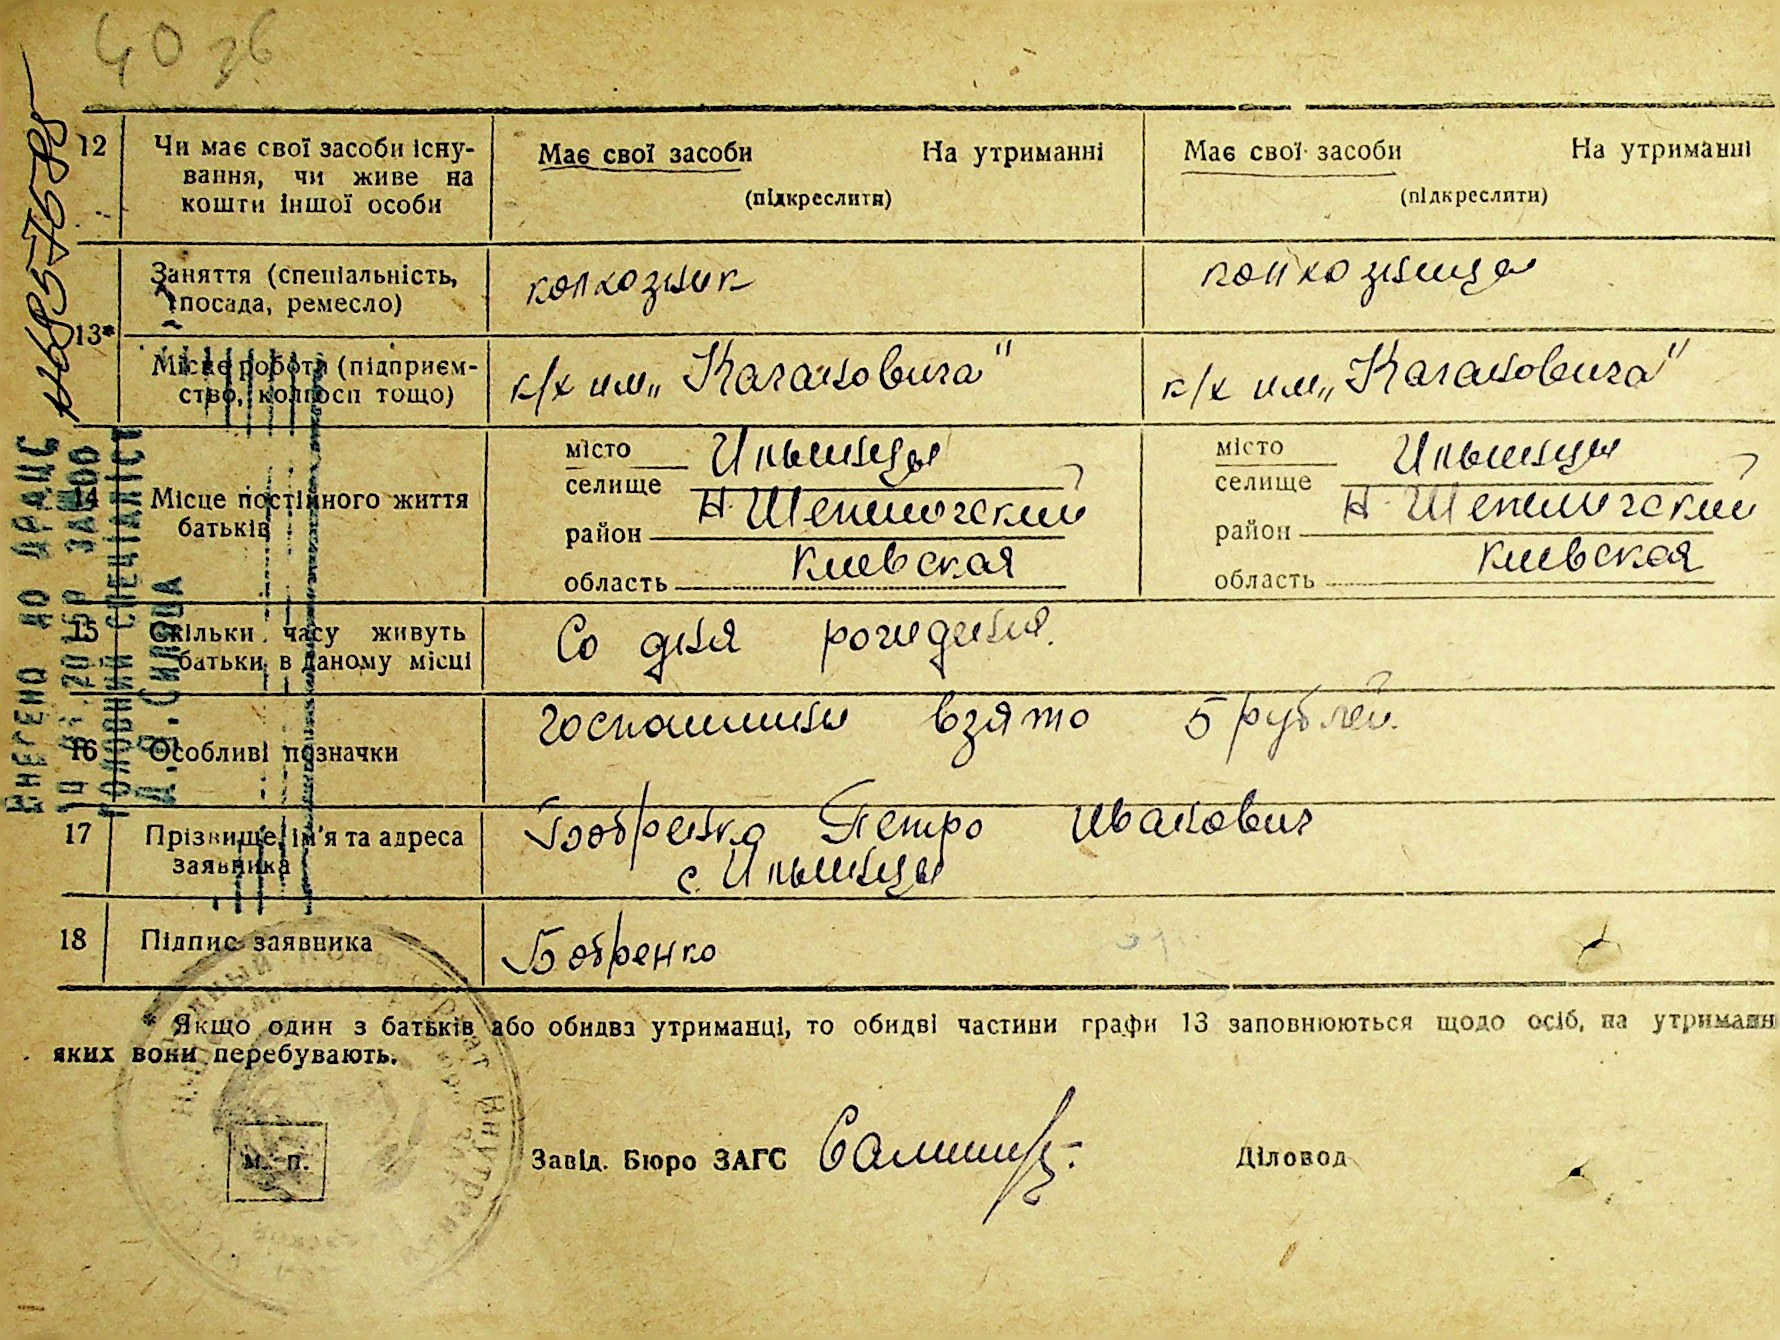 40 зб
12 Чи має свої засоби існу- Має свої засоби На утриманні Має свої засоби На утриманні
вання, чи живе на
кошти іншої особи (підкреслити) (підкреслити)
Заняття (спеціальність, колхозник колхозница
посада, ремесло)
13*
Місце роботи (підприєм- к/х им„ Кагановича" к/х им„ Кагановича"
ство, колгосп тощо)
місто Ильинцы місто Ильинцы
селище селище
14 Місце постійного життя Н. Шепеличский Н. Шепеличский
батьків район район
область Киевская область Киевская
15 Скільки часу живуть Со дня рождения.
батьки в даному місці
16 Особливі позначки госпошлины взято 5 рублей.
17 Прізвище, ім'я та адреса Бобренко Петро Иванович
заявника с. Ильинцы
18 Підпис заявника Бобренко
* Якщо один з батьків або обидва утриманці, то обидві частини графи 13 заповнюються щодо осіб, на утриманн
яких вони перебувають.
М. П. Завід. Бюро ЗАГС Діловод
Внесено до ДРАЦС
головний спеціаліст